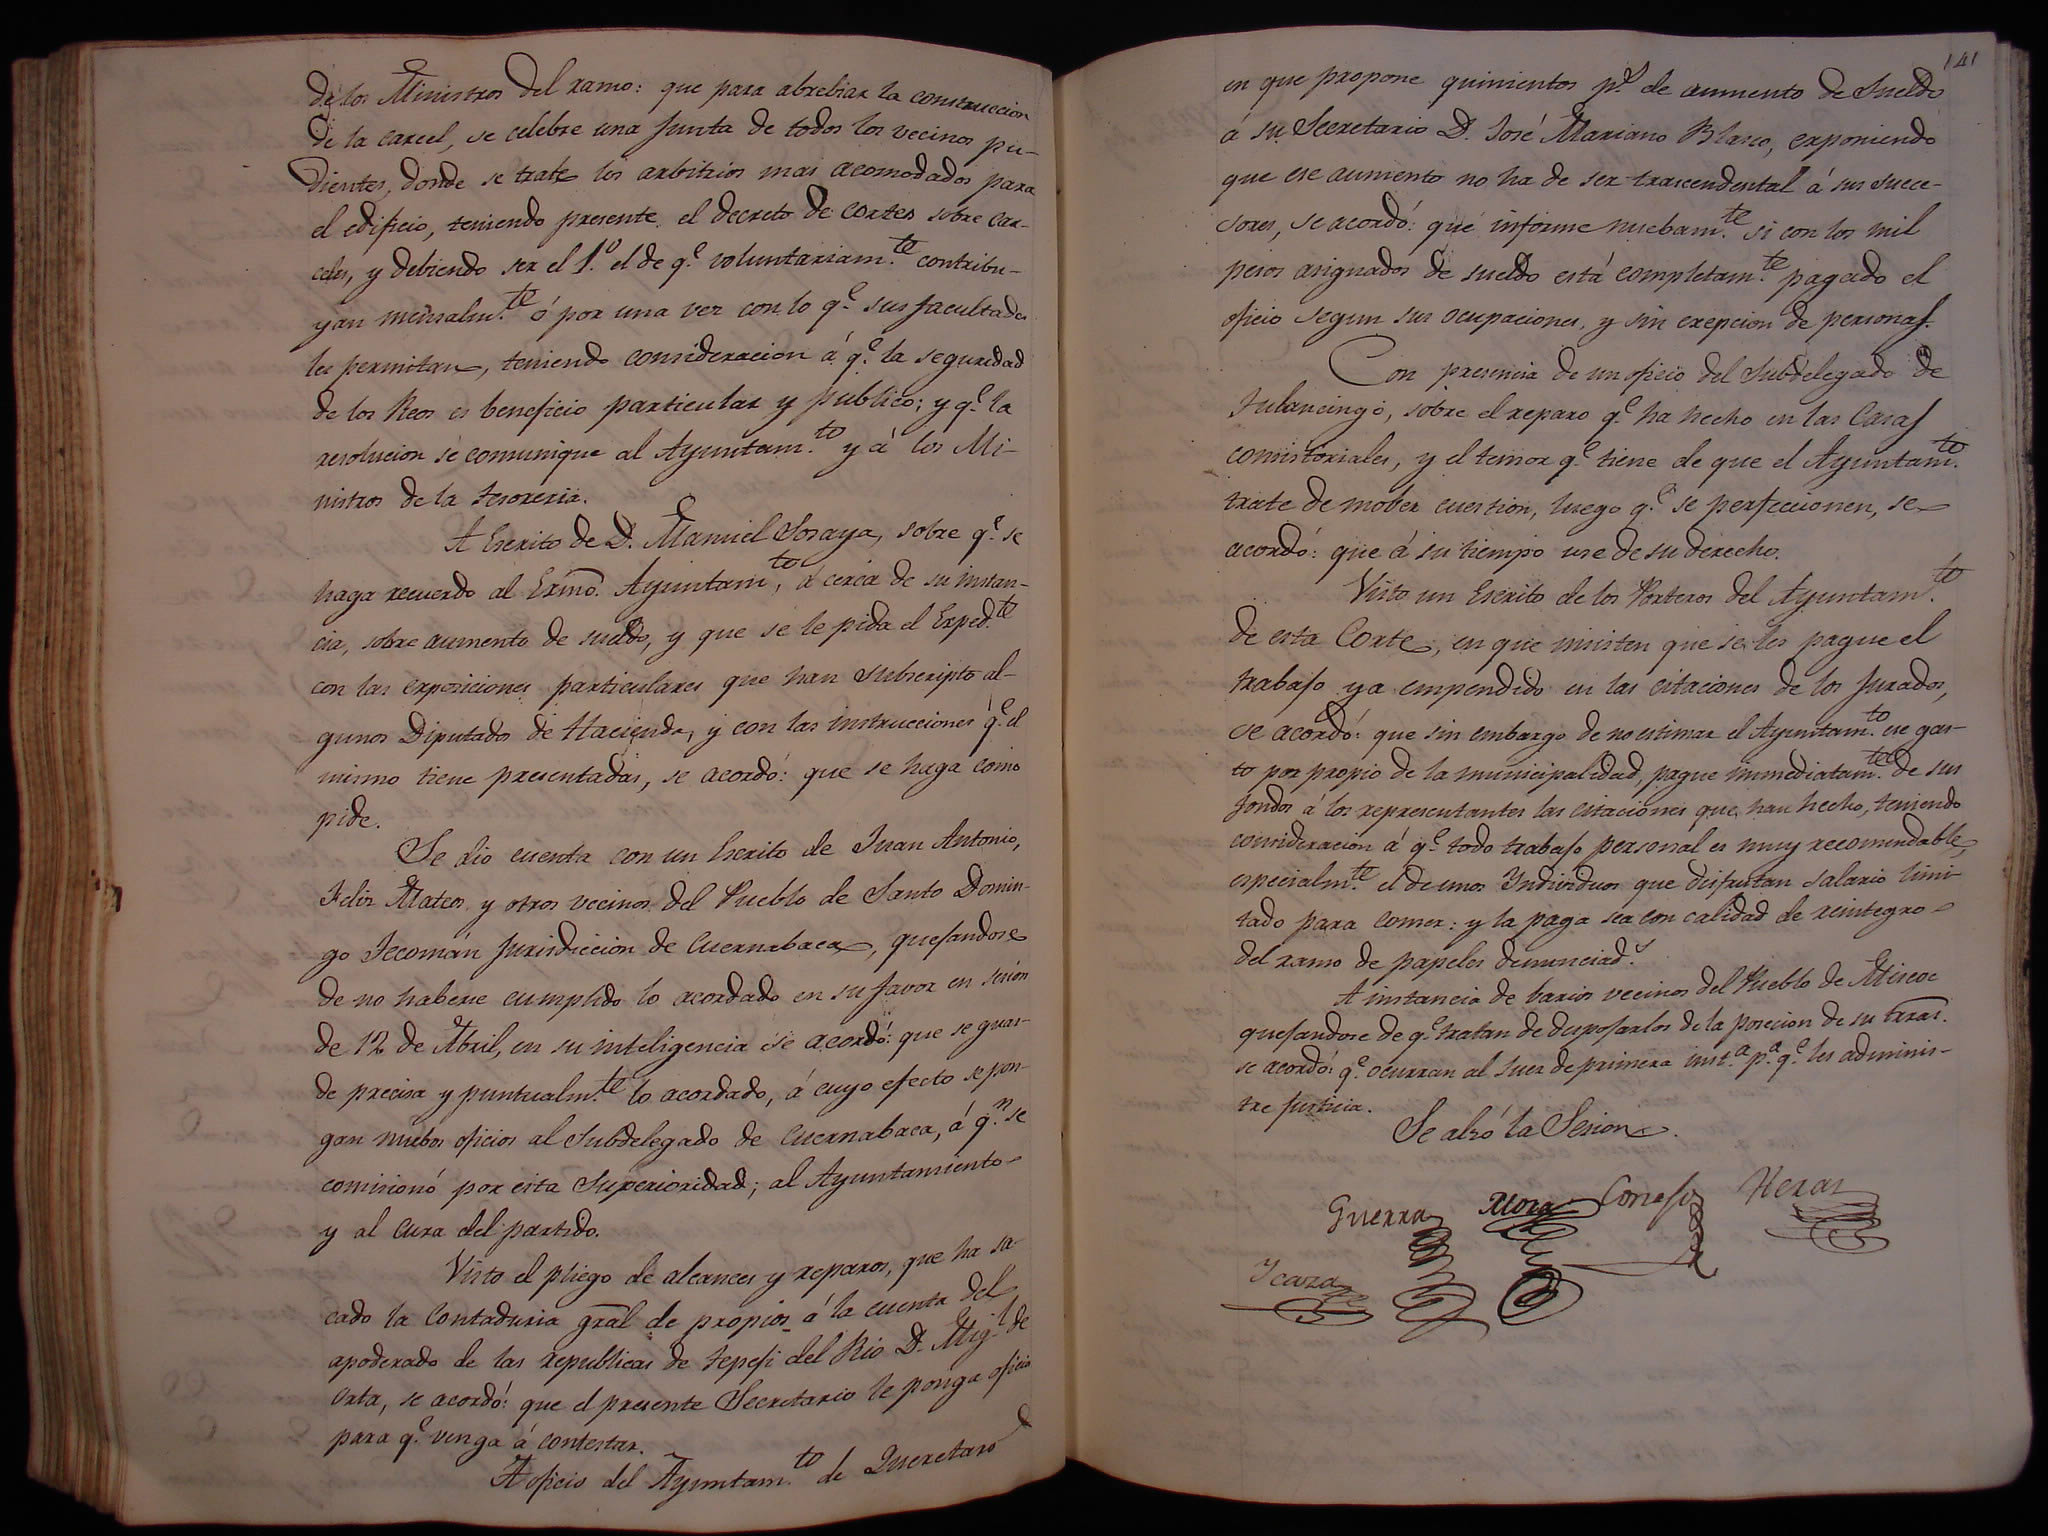 de los Ministros del ramo: que para abrebiar la construccion
de la carcel, se celebre una Junta de todos los vecinos pu-
dientes, donde se trate los arbitrios mas acomodados para
el edificio, teniendo presente el decreto de Cortes sobre car-
celes, y debiendo ser el 1.º el de q.e voluntariam.te contribu-
yan mensalm.te ó por una vez con lo q.e sus facultades
les permitan, teniendo consideracion á q.e la seguridad
de los Reos es beneficio particular y publico; y q.e la
resolucion se comunique al Ayuntam.to y á los Mi-
nistros de la tesoreria.
A Escrito de D. Manuel Soraya, sobre q.e se
haga recuerdo al Exmo. Ayuntam.to, á cerca de su instan-
cia, sobre aumento de sueldo, y que se le pida el Exped.te
con las exposiciones particulares que han subscripto al-
gunos Diputados de Hacienda, y con las instrucciones q.e el
mismo tiene presentadas, se acordó: que se haga como
pide.
Se dio cuenta con un Escrito de Juan Antonio,
Felix Mateos y otros vecinos del Pueblo de Santo Domin-
go Jecomán Jurisdiccion de Cuernabaca, quejandose
de no haberse cumplido lo acordado en su favor en sesion
de 12 de Abril, en su inteligencia se acordó: que se guar-
de precisa y puntualm.te lo acordado, á cuyo efecto se pon-
gan nuebos oficios al Subdelegado de Cuernabaca, á q.n se
comisionó por esta Superioridad; al Ayuntamiento
y al Cura del partido.
Visto el pliego de alcances y reparos, que ha sa-
cado la Contaduria gral de propios á la cuenta del
apoderado de las republicas de Tepeji del Rio D. Mig.l de
Orta, se acordó: que el presente Secretario le ponga oficio
para q.e venga á contestar.
A oficio del Ayuntam.to de Queretaro
141
en que propone quinientos p.s de aumento de Sueldo
á su Secretario D. José Mariano Blasco, exponiendo
que ese aumento no ha de ser trascendental á sus succe-
sores, se acordó: que informe nuebam.te si con los mil
pesos asignados de sueldo está completam.te pagado el
oficio segun sus ocupaciones, y sin exepcion de personas.
Con presencia de un oficio del Subdelegado de
Tulancingo, sobre el reparo q.e ha hecho en las Casas
consistoriales, y el temor q.e tiene de que el Ayuntam.to
trate de mober cuestion, luego q.e se perfeccionen, se
acordó: que á su tiempo use de su derecho.
Visto un Escrito de los Porteros del Ayuntam.to
de esta Corte, en que insisten que se les pague el
trabajo ya empendido en las citaciones de los Jurados,
se acordó: que sin embargo de no estimar el Ayuntam.to ese gas-
to por propio de la municipalidad, pague inmediatam.te de sus
fondos á los representantes las citaciones que han hecho, teniendo
consideracion á q.e todo trabajo personal es muy recomendable,
especialm.te el de unos Yndividuos que disfrutan salario limi-
tado para comer: y la paga sea con calidad de reintegro
del ramo de papeles denunciad.s
A instancia de barios vecinos del Pueblo de Miscoc
quejandose de q.e tratan de desposarlos de la posecion de su tierras.
se acordó: q.e ocurran al Juez de primera inst.a p.a q.e les adminis-
tre justicia.
Se alzó la Sesion.
Guerra Mora Cortesi Heras
Ycaza